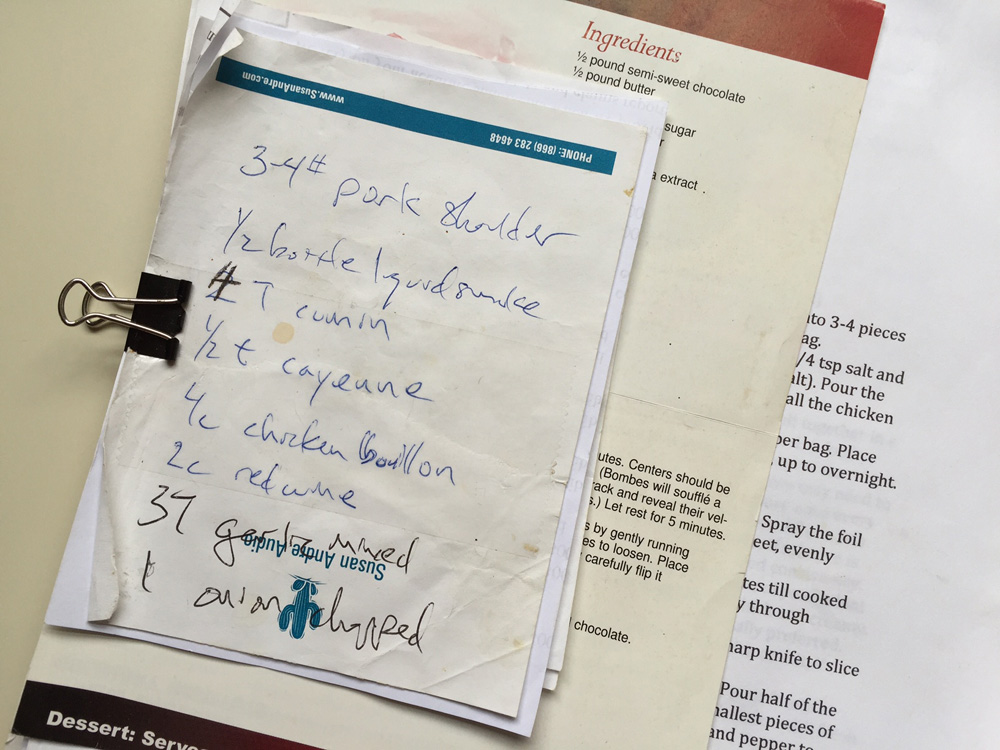 www.SusanAndre.com
PHONE: (866) 283 4648
3-4# pork shoulder
1/2 bottle liquid smoke
T cumin
1/2 t cayenne
4c chicken bouillon
2c red wine
3T garlic minced
Susan Andre Audio
onion chopped
Ingredients
½ pound semi-sweet chocolate
½ pound butter
sugar
extract
utes. Centers should be
(Bombes will soufflé a
rack and reveal their vel-
s.) Let rest for 5 minutes.
s by gently running
es to loosen. Place
carefully flip it
chocolate.
Dessert: Serve
to 3-4 pieces
ag.
/4 tsp salt and
alt). Pour the
all the chicken
per bag. Place
up to overnight.
Spray the foil
eet, evenly
tes till cooked
y through
harp knife to slice
Pour half of the
mallest pieces of
and pepper to